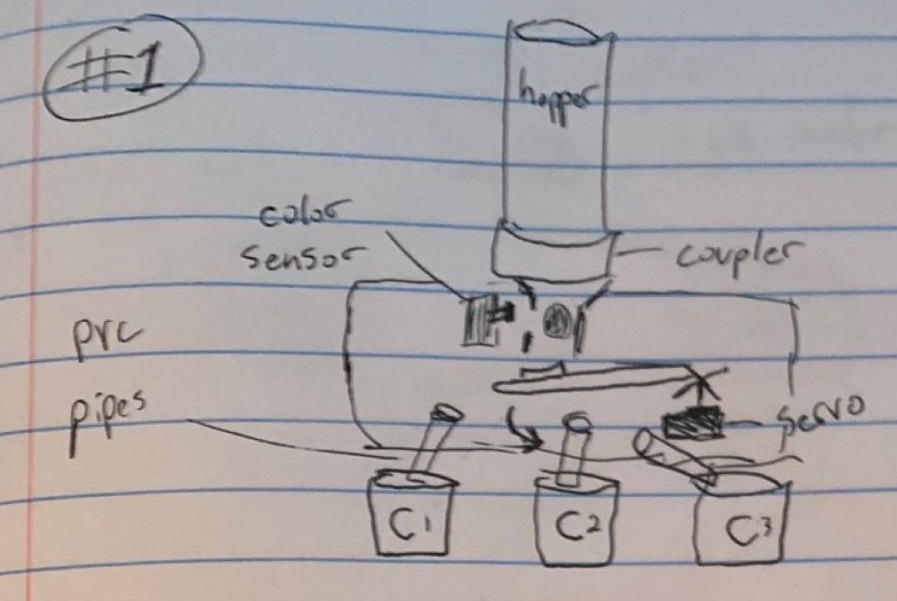 #1
hopper
color
sensor
coupler
pvc
pipes
servo
C1
C2
C3